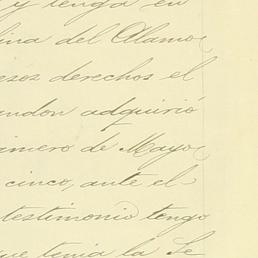 y tenga en
lina del Alamo
esos derechos el
andon adquirió
rimero de Mayo
cinco, ante el
testimonio tengo
que tenia la Se